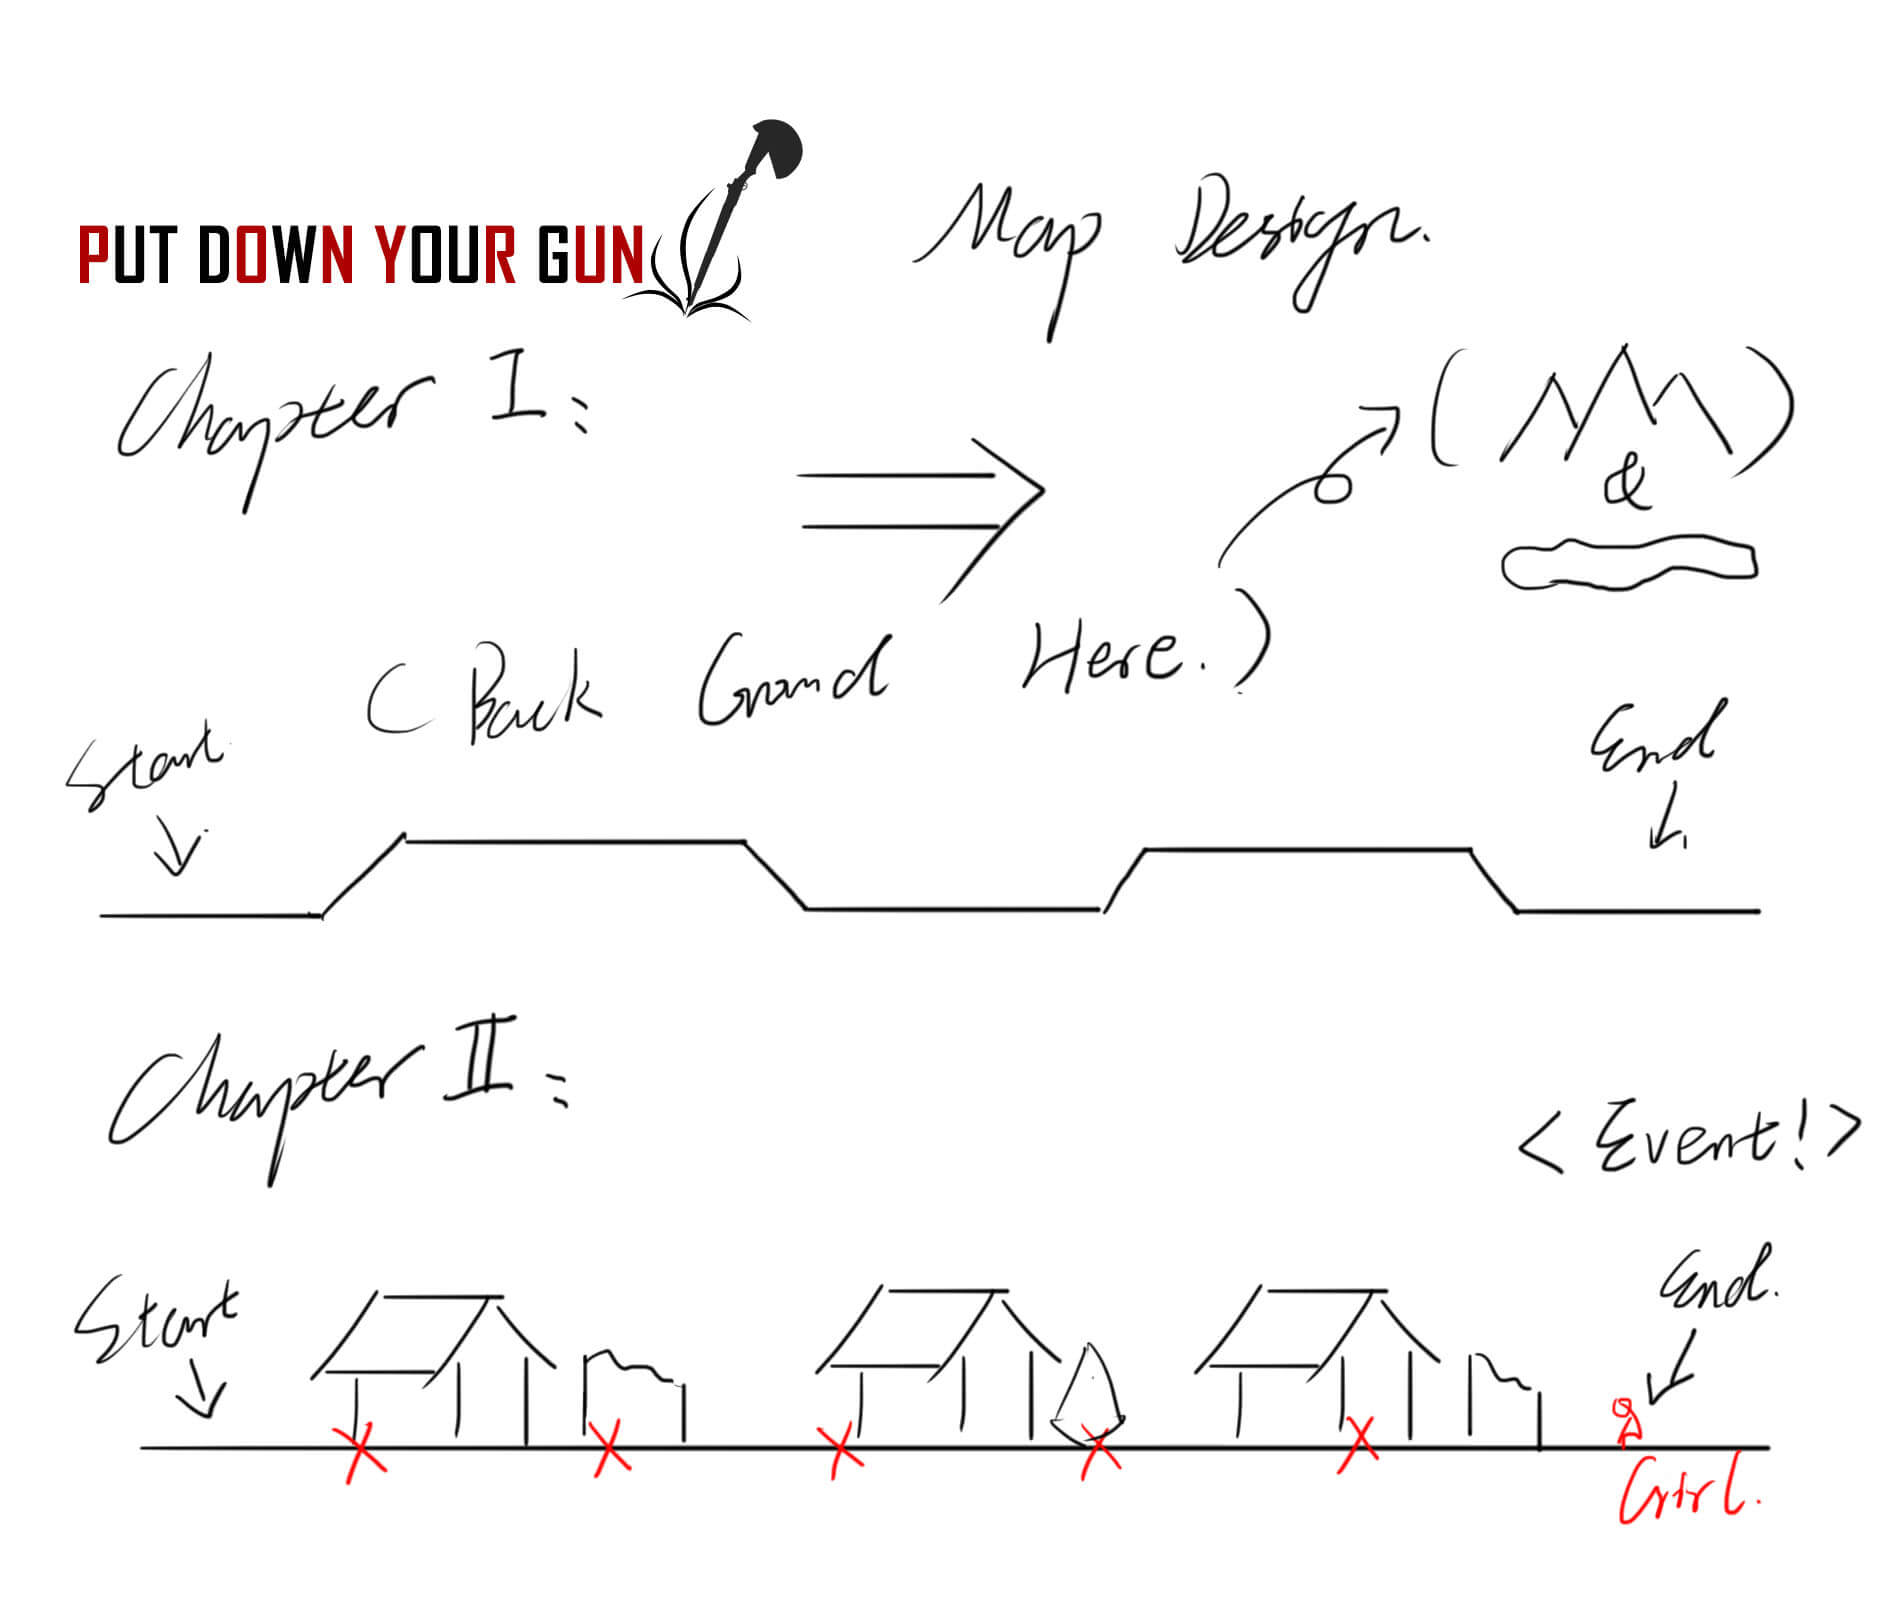 PUT DOWN YOUR GUN
Map Design.
Chapter I:
&
(Back Ground Here.)
Start
End
Chapter II:
<Event!>
Start
End.
Girl.